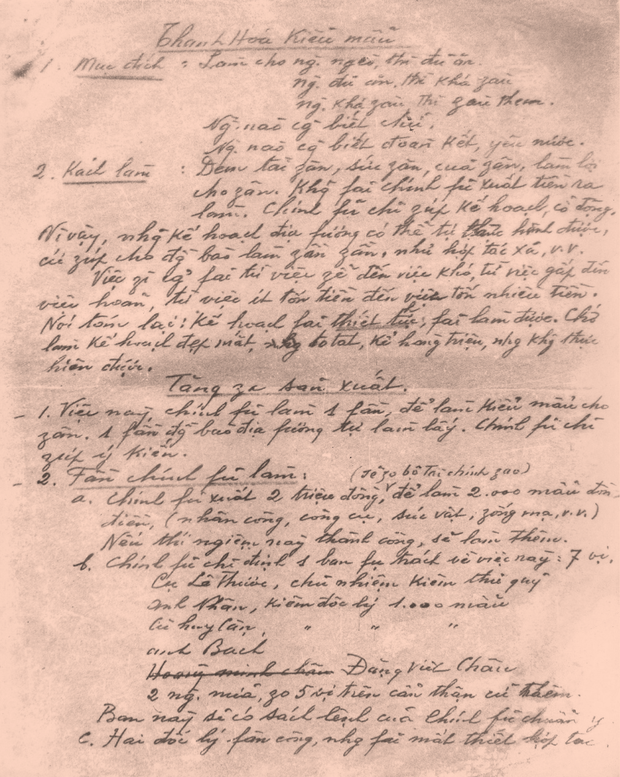 Thanh Hóa Kiểu mẫu
1. Mục đích : Làm cho ng. ngèo, thì đủ ăn.
ng. đủ ăn, thì khá zàu
ng. khá zàu thì zàu thêm.
Ng. nào cg biết chữ,
Ng. nào cg biết đoàn kết, yêu nước.
2. Kách làm : Đem tài zân, sức zân, của zân, làm lợi
cho zân. Khg fải chính fủ xuất tiền ra
làm. Chính fủ chỉ zúp kế hoạch, cổ động.
Vì vậy, nhg kế hoạch địa fương có thể tự thực hành được,
cứ zúp cho đg bào làm zần zần, như hợp tác xã, v.v.
Việc gì cg fải từ việc zễ đến việc khó, từ việc gấp đến
việc hoãn, từ việc ít tốn tiền đến việc tốn nhiều tiền.
Nói tóm lại: Kế hoạch fải thiết thực, fải làm được. Chớ
làm kế hoạch đẹp mắt, to tát, kể hàng triệu, nhg khg thực
hiện được.
Tăng za sản xuất.
- 1. Việc này, chính fủ làm 1 fần, để làm kiểu mẫu cho
zân. 1 fần đg bào địa fương tự làm lấy. Chính fủ chỉ
zúp ý kiến.
- 2. Fần chính fủ làm: (sẽ zo bộ Tài chính zao)
a. Chính fủ xuất 2 triệu đồng, để làm 2.000 mẫu đồn
điền, (nhân công, công cụ, súc vật, zống mạ, v.v.)
Nếu thí ngiệm này thành công, sẽ làm thêm.
b. Chính fủ chỉ định 1 ban fụ trách về việc này: 7 vị,
Cụ Lê Thước, chủ nhiệm kiêm thủ quỹ
anh Nhân, kiêm đốc lý 1.000 mẫu
Cù huy Cận, " " "
anh Bách
Hoàng minh châu Đặng Việt Châu
2 ng. nữa, zo 5 vị trên cẩn thận cử thêm.
Ban này sẽ có sắc lệnh của Chính fủ chuẩn y.
c. Hai đốc lý fân công, nhg fải mật thiết hợp tác.